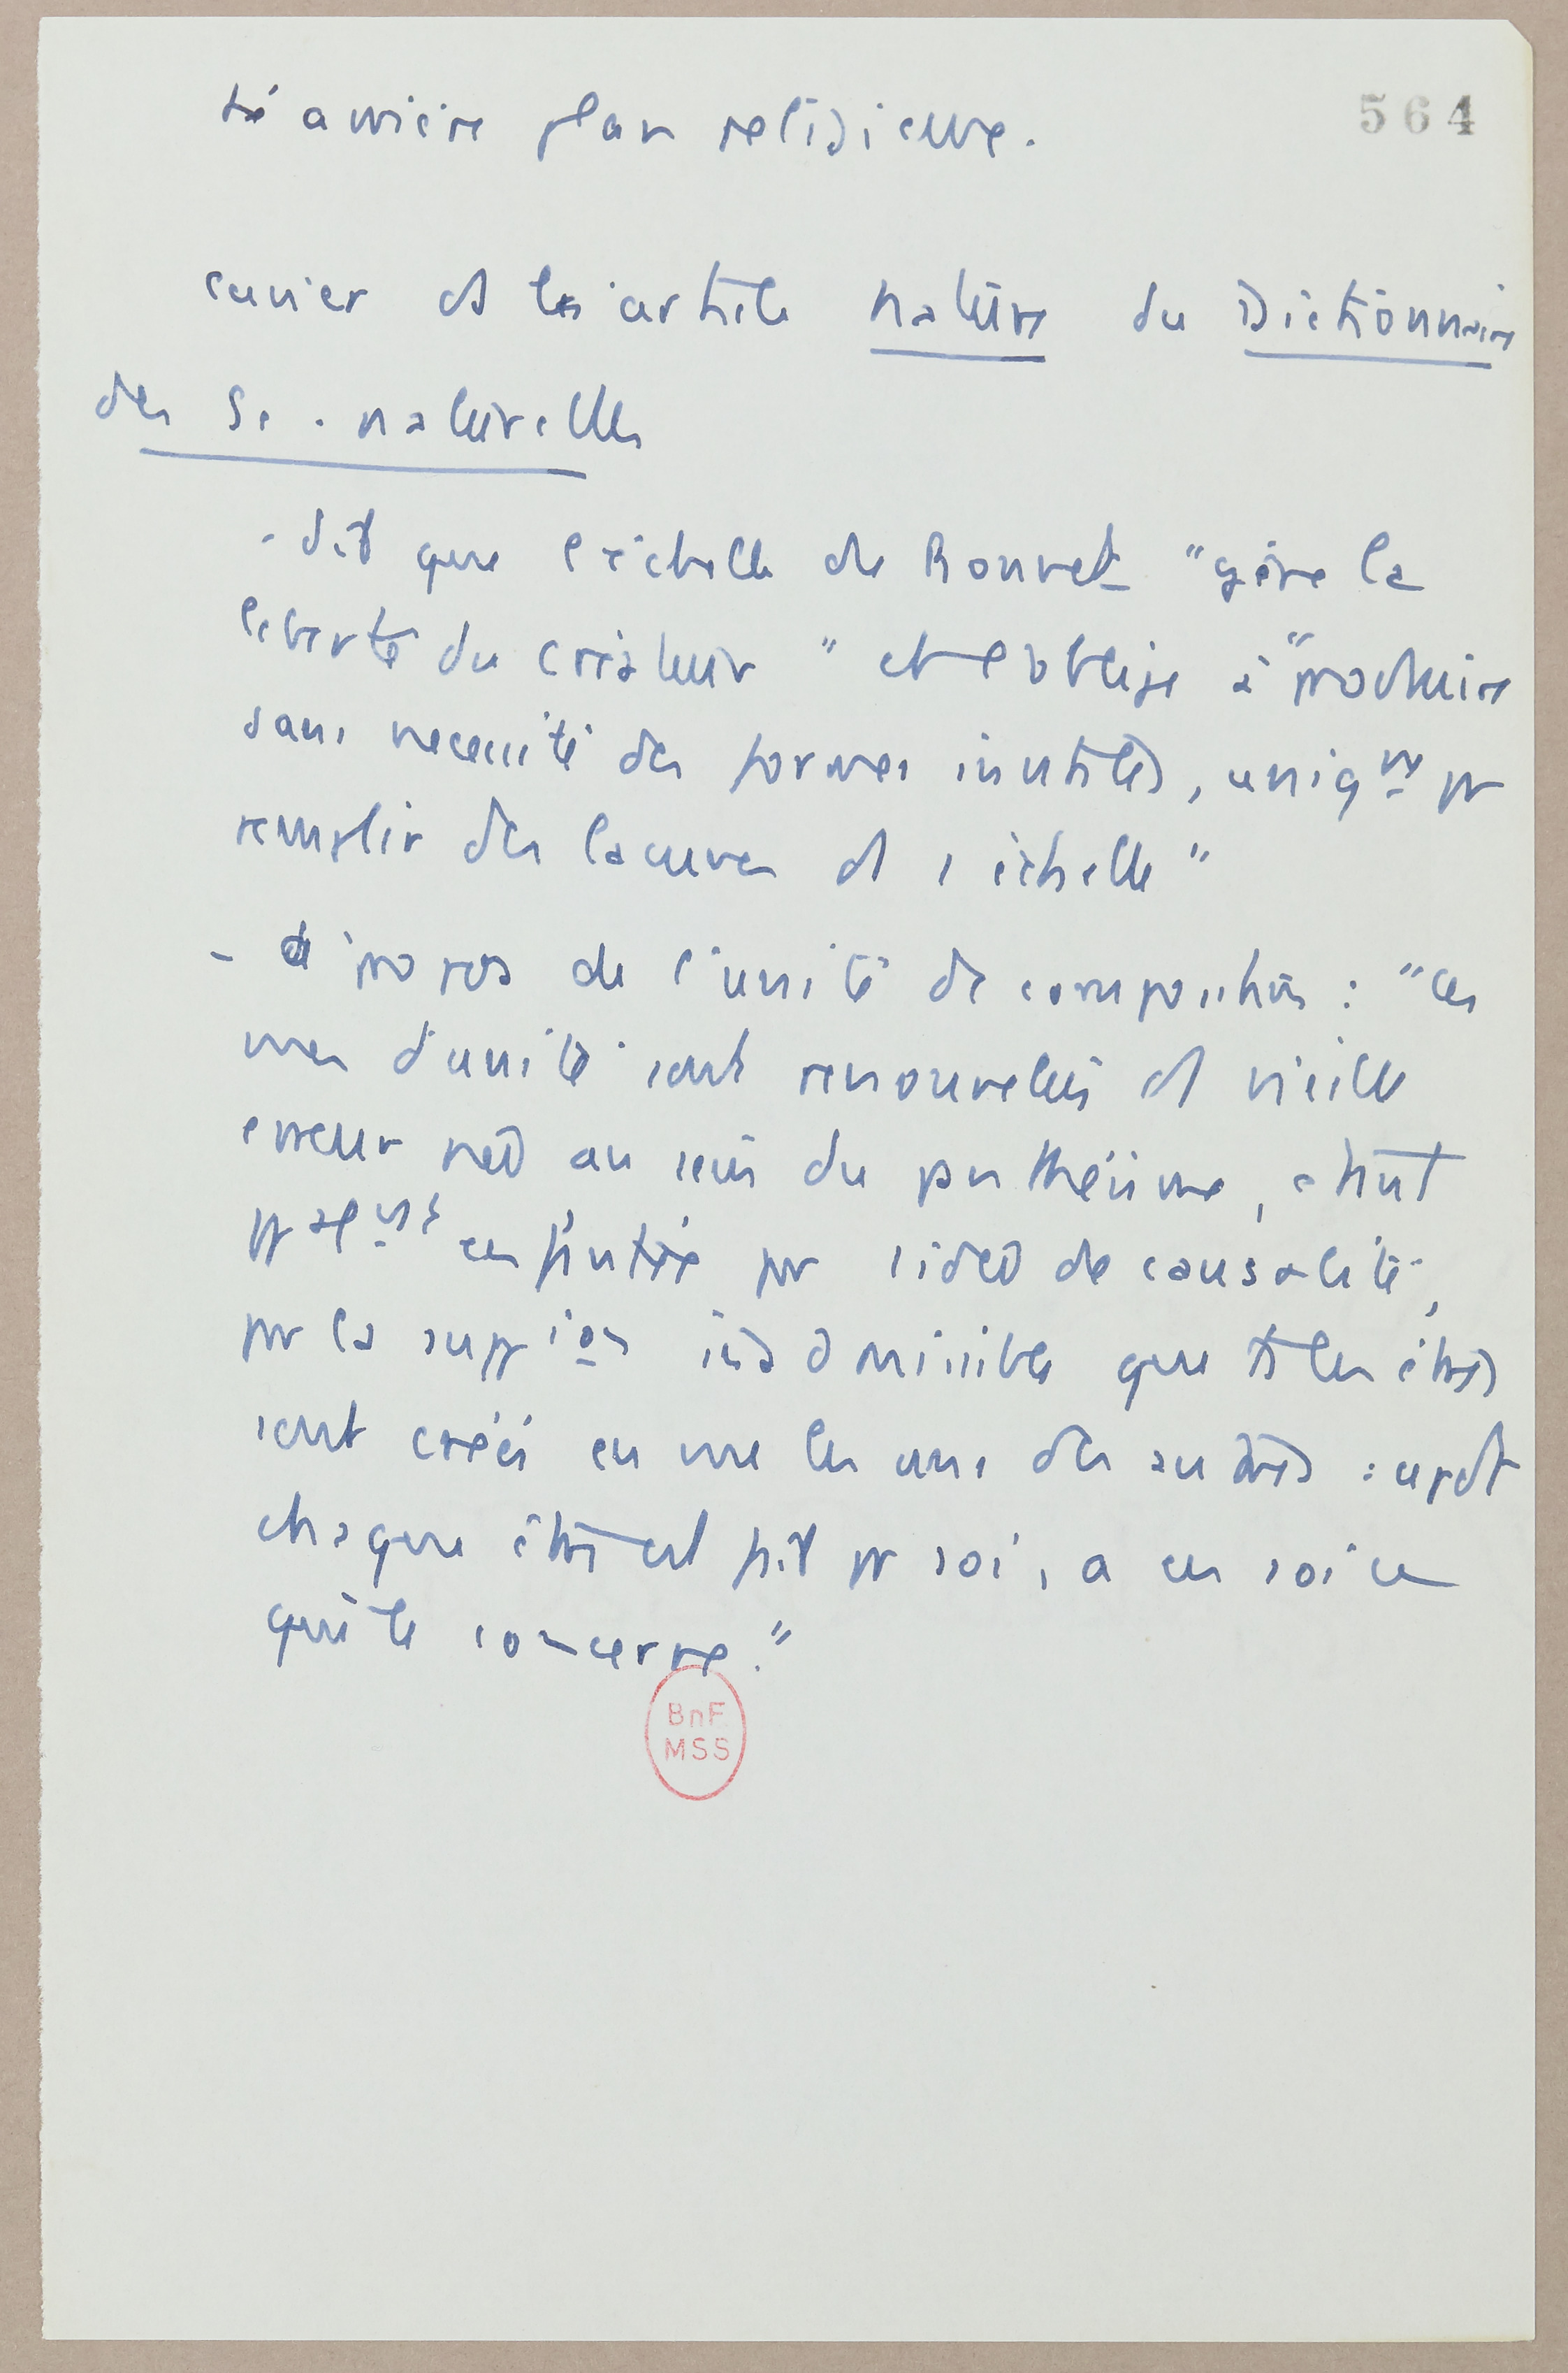 564
arrière plan religieuse.
Cuvier et les article Nature du Dictionnaire
des Sc. naturelles
- dit que l'échelle de Bonnet "gêne la
liberté du créateur" et l'oblige à "produire
sans necessité des formes inutiles, uniqmt pr
remplir des lacunes ds l'échelle"
- à propos de l'unité de composition : "Ces
vues d'unité sont renouvelées d vieille
erreur née au sein du panthéisme, étant
enfantée par l'idée de causalité,
par la suppion inadmissible que ts les êtres
sont créés en vue les uns des autres : cepdt
chaque être est fait pr soi, a en soi ce
qui le concerne."
BnF
MSS